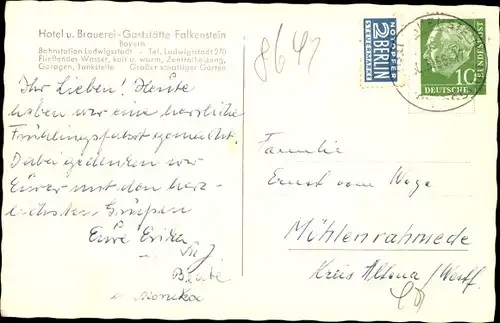 Hotel u. Brauerei-Gaststätte Falkenstein
Bayern
Bahnstation Ludwigsstadt - Tel. Ludwigsstadt 270
Fließendes Wasser, kalt u. warm, Zentralheizung,
Garagen, Tankstelle Großer schattiger Garten
8641
Ihr Lieben! Heute
haben wir eine herrliche
Frühlingsfahrt gemacht.
Dabei gedenken wir
Eurer mit den herz-
lichsten Grüßen
Eure Erika
u. Monika
NOTOPFER
2 BERLIN
STEUERMARKE
10
DEUTSCHE
BUNDESPOST
Familie
Ernst vom Wege
Mühlenrahmede
Kreis Altena/Westf.